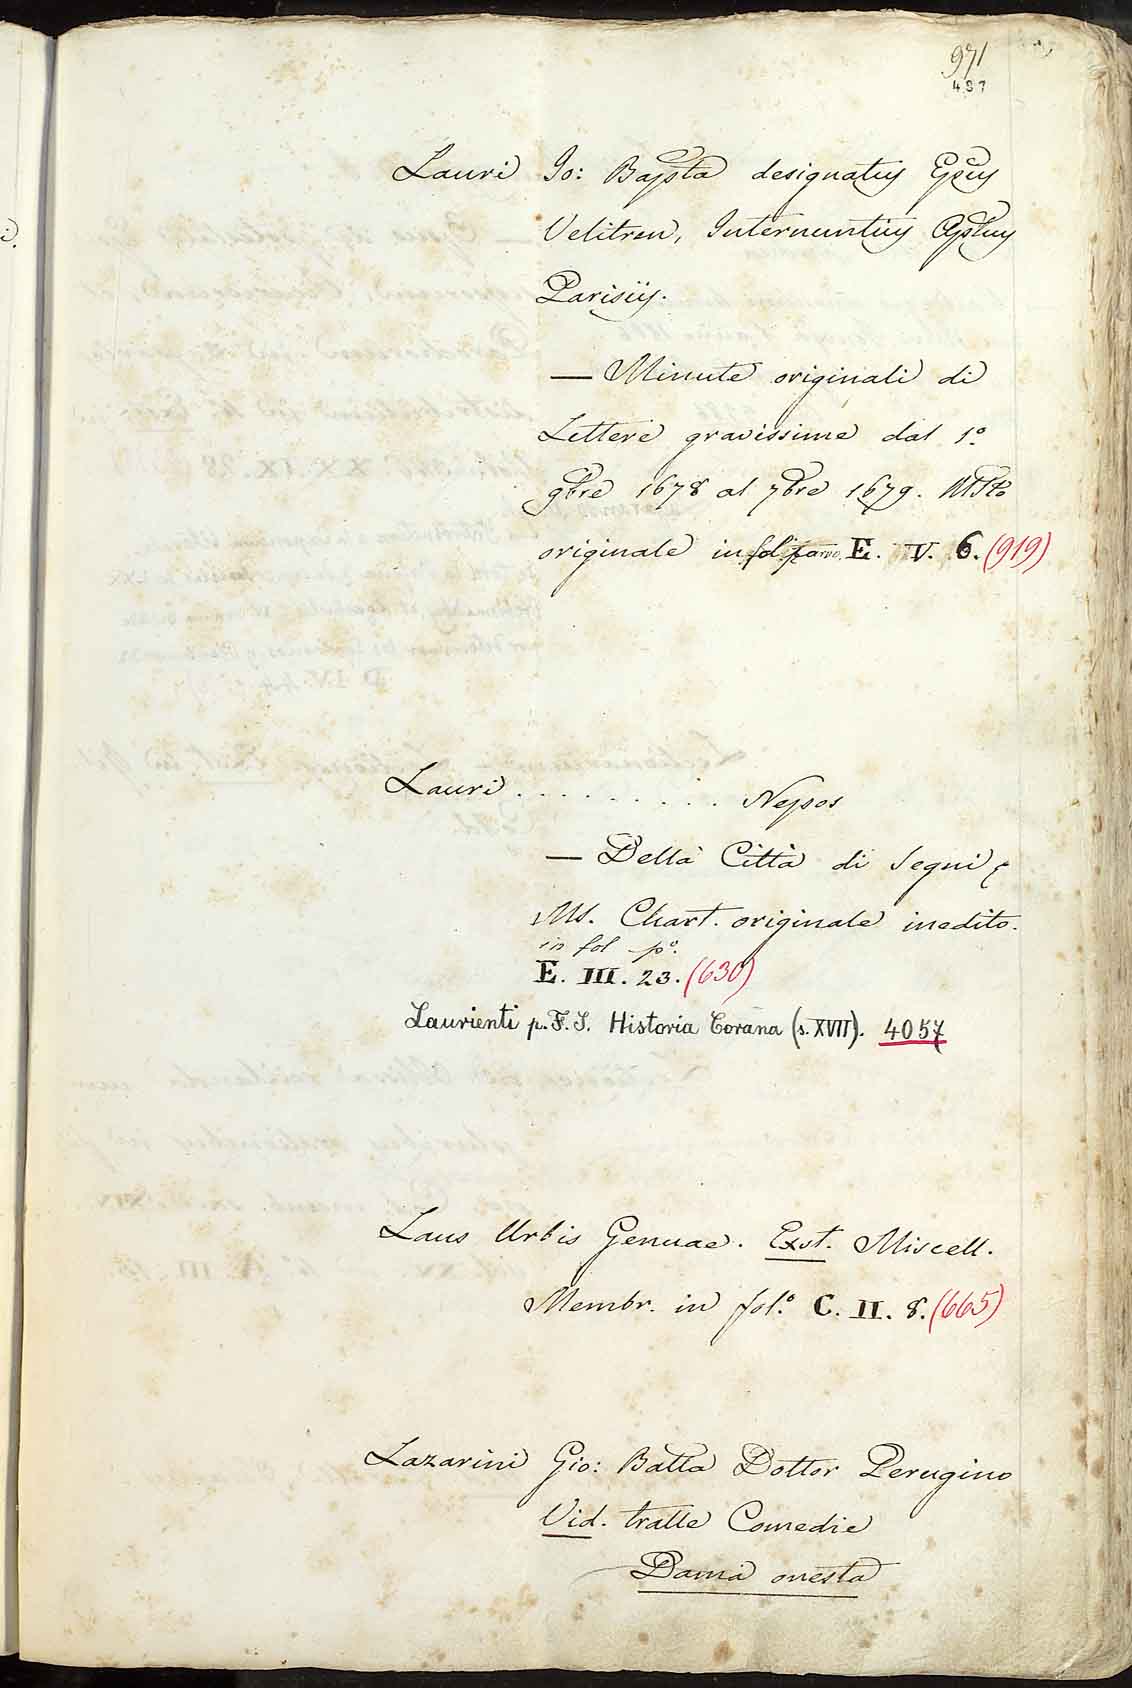 971
487
Lauri Io: Bapsta designatus Epcus
Velitren, Internuntius Aplcus
Parisiis.
— Minute originali di
Lettere gravissime dal 1º
9bre 1678 al 7bre 1679. MSto
originale in fol. parvo. E. V. 6. (919)
Lauri . . . . . . . . . . Nepos
— Della Città di Segni
MS. Chart. originale inedito.
in fol pº.
E. III. 23. (630)
Laurienti p. F. S. Historia Corana (s. XVII). 4057
Laus Urbis Genuae. Exst. Miscell.
Membr. in fol.º C. II. 8. (665)
Lazarini Gio: Batta Dottor Perugino
Vid. tralle Comedie
Dama onesta